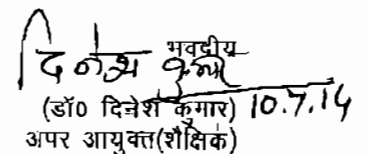 भवदीय
दिनेश कुमार
(डॉ0 दिनेश कुमार) 10.7.14
अपर आयुक्त(शैक्षिक)